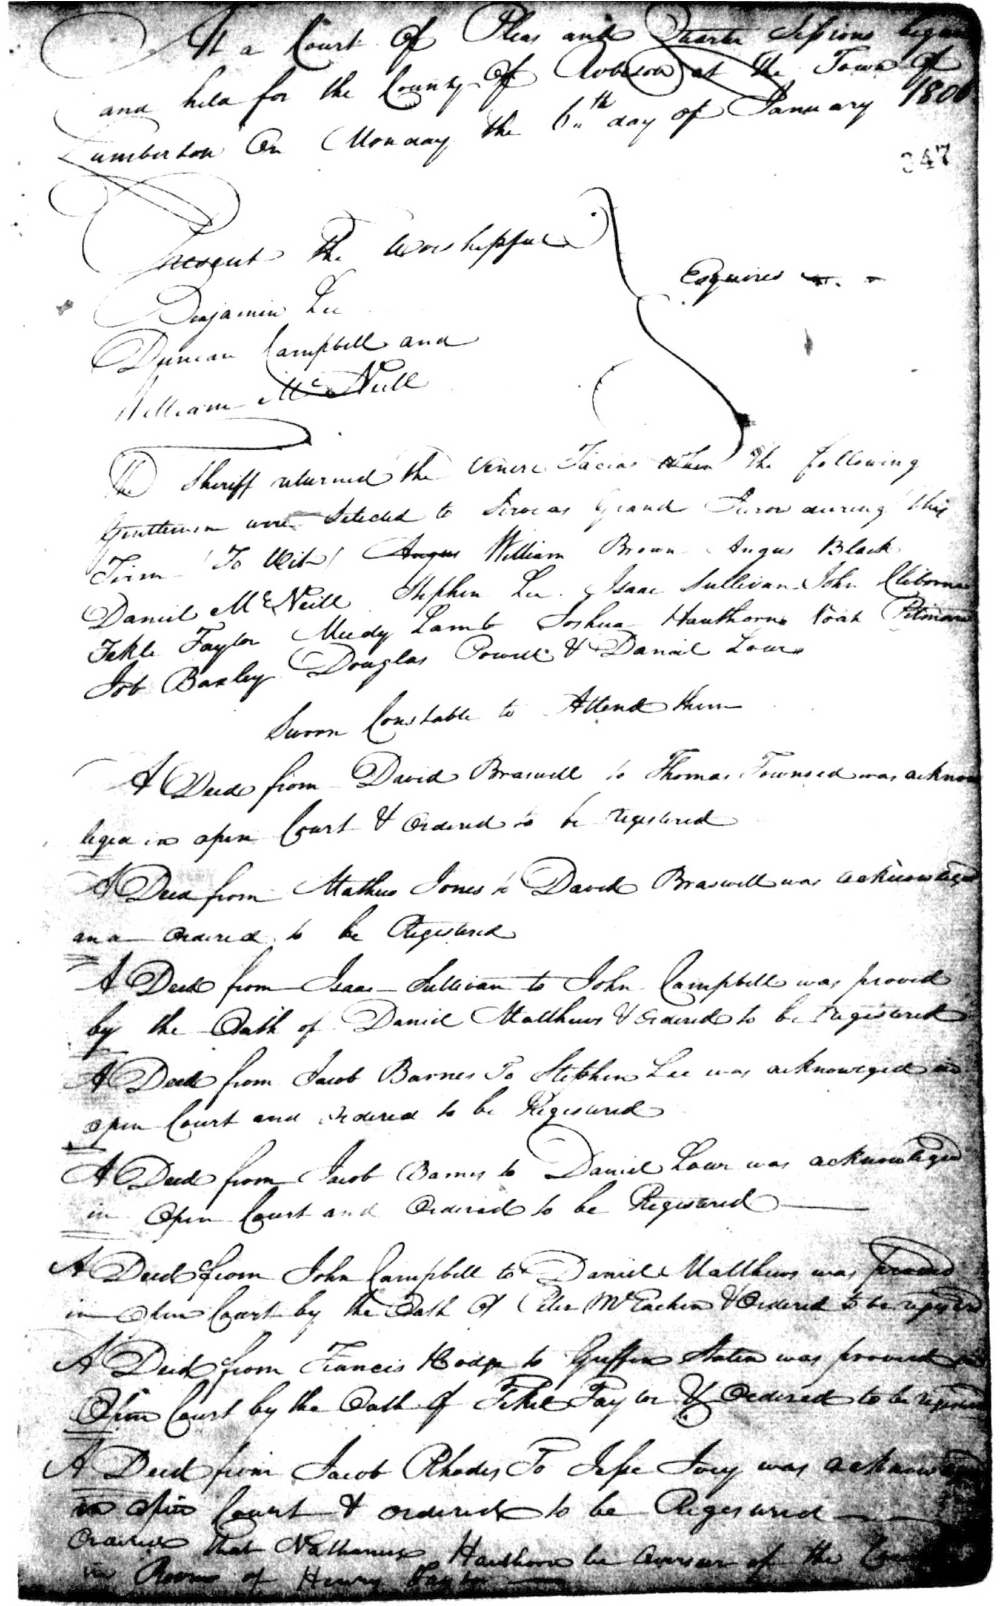 At a Court Of Pleas and Quarter Sessions began
and held for the County Of Robeson at the Town Of
Lumberton On Monday the 6th day of January 1806
347
Present the Worshipful
Esquires
Benjamin Lee
Duncan Campbell and
William McNeill
The Sheriff returned the Venire Facias when the following
Gentlemen were Selected to Serve as Grand Juror during this
Term (To Wit) Angus William Brown Angus Black
Daniel McNeill Stephen Lee Isaac Sullivan John Cliborne
Tekle Taylor Meedy Lamb Joshua Hawthorn Noah Pitman
Job Baxley Douglas Powell & Daniel Lowe
Sworn Constable to Attend them
A Deed from David Braswell to Thomas Townsed was acknow
leged in open Court & Ordered to be registered
A Deed from Mathew Jones to David Braswell was acknowleged
and Ordered to be Registered
A Deed from Isaac Sullivan to John Campbell was proved
by the Oath of Daniel Matthews & Ordered to be registered
A Deed from Jacob Barnes To Stephen Lee was acknowleged in
open Court and Ordered to be Registered
A Deed from Jacob Barnes to Daniel Lowe was acknowleged
in Open Court and Ordered to be Registered
A Deed from John Campbell to Daniel Matthews was proved
in Open Court by the Oath Of Peter McEachin & Ordered to be registered
A Deed from Francis Hodge to Griffin Staten was proved in
Open Court by the Oath Of Tekel Taylor & Ordered to be registered
A Deed from Jacob Rhodes To Jesse Ivey was acknowleged
in Open Court & ordered to be Registered
Ordered that Nathaniel Hawthorn be Overseer of the
in Room of Henry Taylor